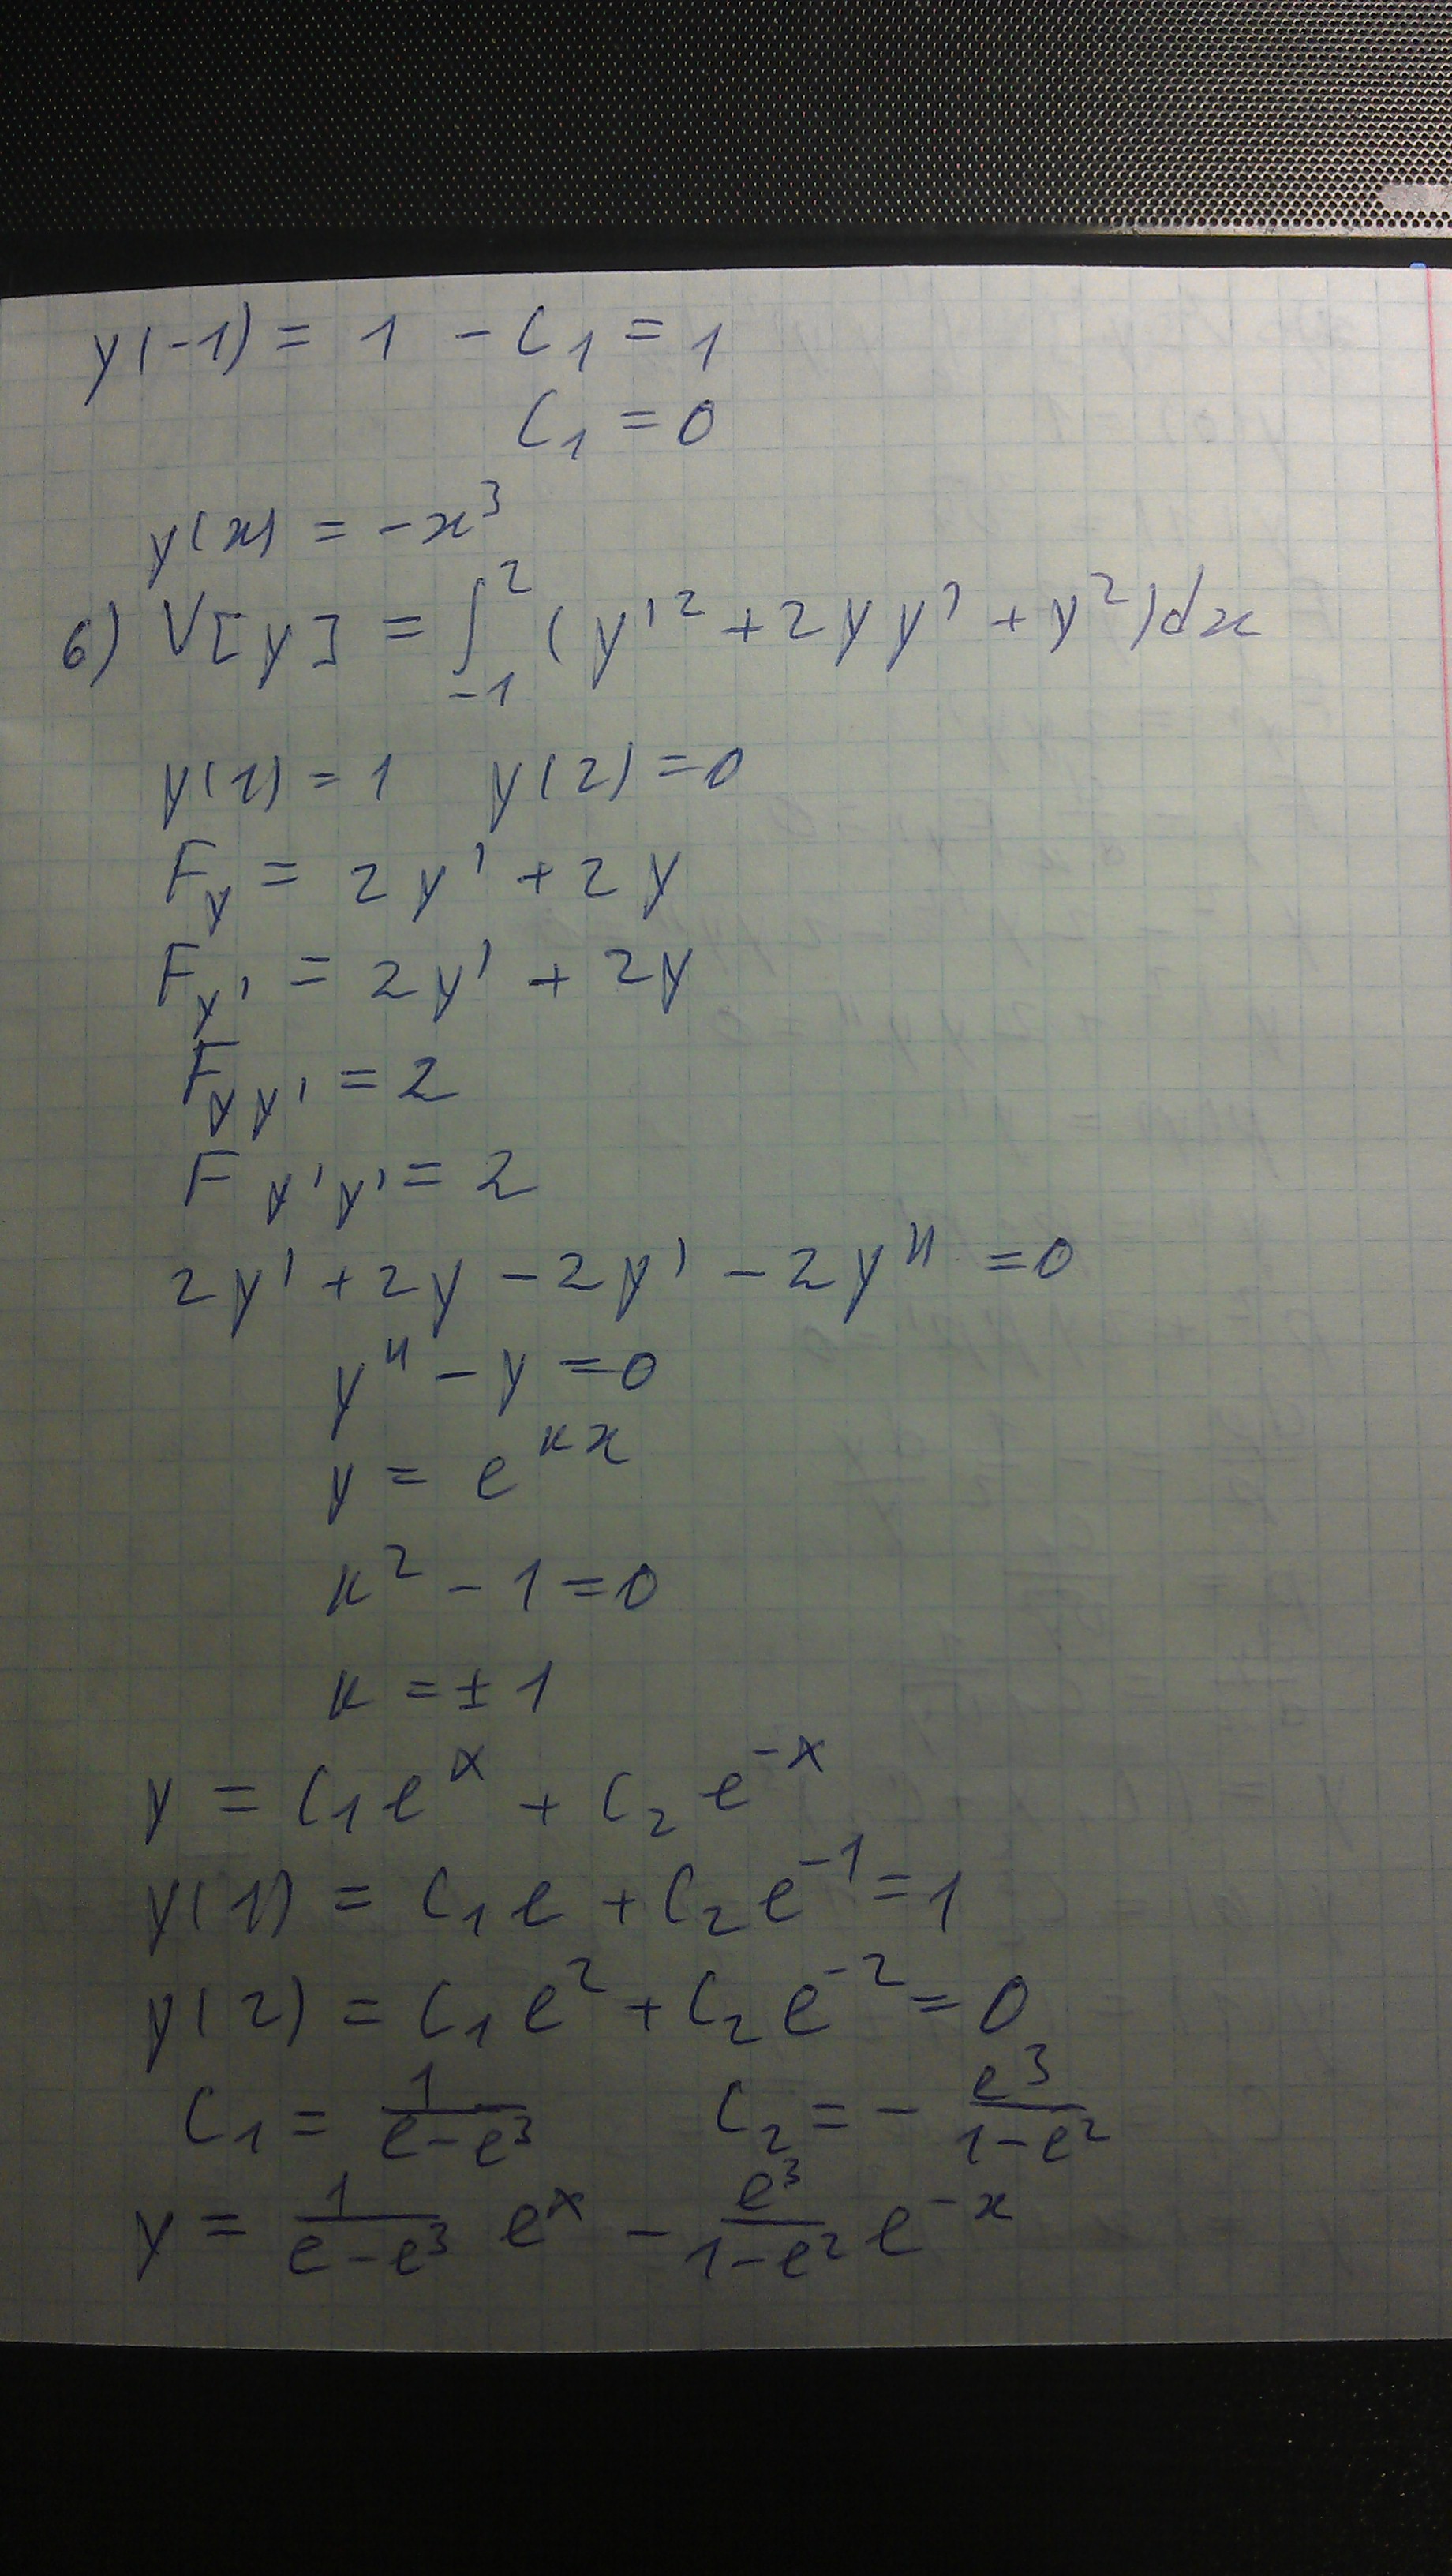 y(-1) = 1 - C₁ = 1
C₁ = 0
y(x) = -x³
6) V[y] = ∫₋₁² (y'² + 2yy' + y²)dx
y(1) = 1 y(2) = 0
F_y = 2y' + 2y
F_y' = 2y' + 2y
F_yy' = 2
F_y'y' = 2
2y' + 2y - 2y' - 2y'' = 0
y'' - y = 0
y = e^(kx)
k² - 1 = 0
k = ± 1
y = C₁e^x + C₂e^(-x)
y(1) = C₁e + C₂e⁻¹ = 1
y(2) = C₁e² + C₂e⁻² = 0
C₁ = 1/(e-e³) C₂ = - e³/(1-e²)
y = 1/(e-e³) e^x - e³/(1-e²) e^(-x)